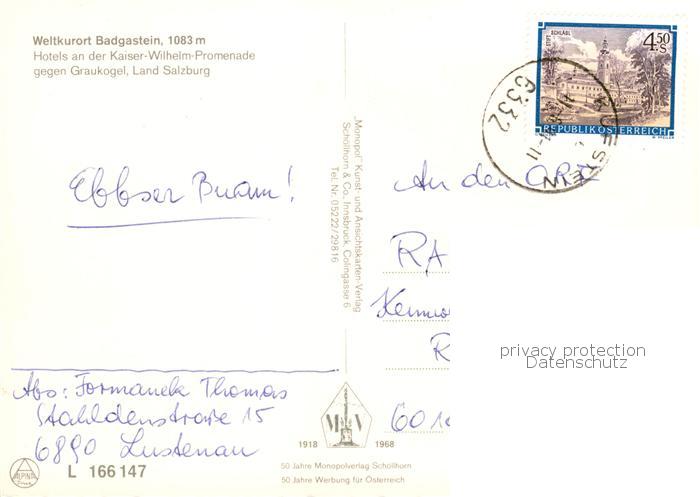 Weltkurort Badgastein, 1083 m
Hotels an der Kaiser-Wilhelm-Promenade
gegen Graukogel, Land Salzburg
STIFT SCHLÄGL
4.50
S
REPUBLIK ÖSTERREICH
6332 KUFSTEIN
Ebbser Buam!
„Monopol" Kunst- und Ansichtskarten-Verlag
Schöllhorn & Co., Innsbruck, Colingasse 6
Tel. Nr. 05222/29816
An den ORF
RA
R
601
privacy protection
Datenschutz
Abs: Formanek Thomas
Stahldenstraße 15
6890 Lustenau
ALPINA
L 166 147
M V
1918 1968
50 Jahre Monopolverlag Schöllhorn
50 Jahre Werbung für Österreich